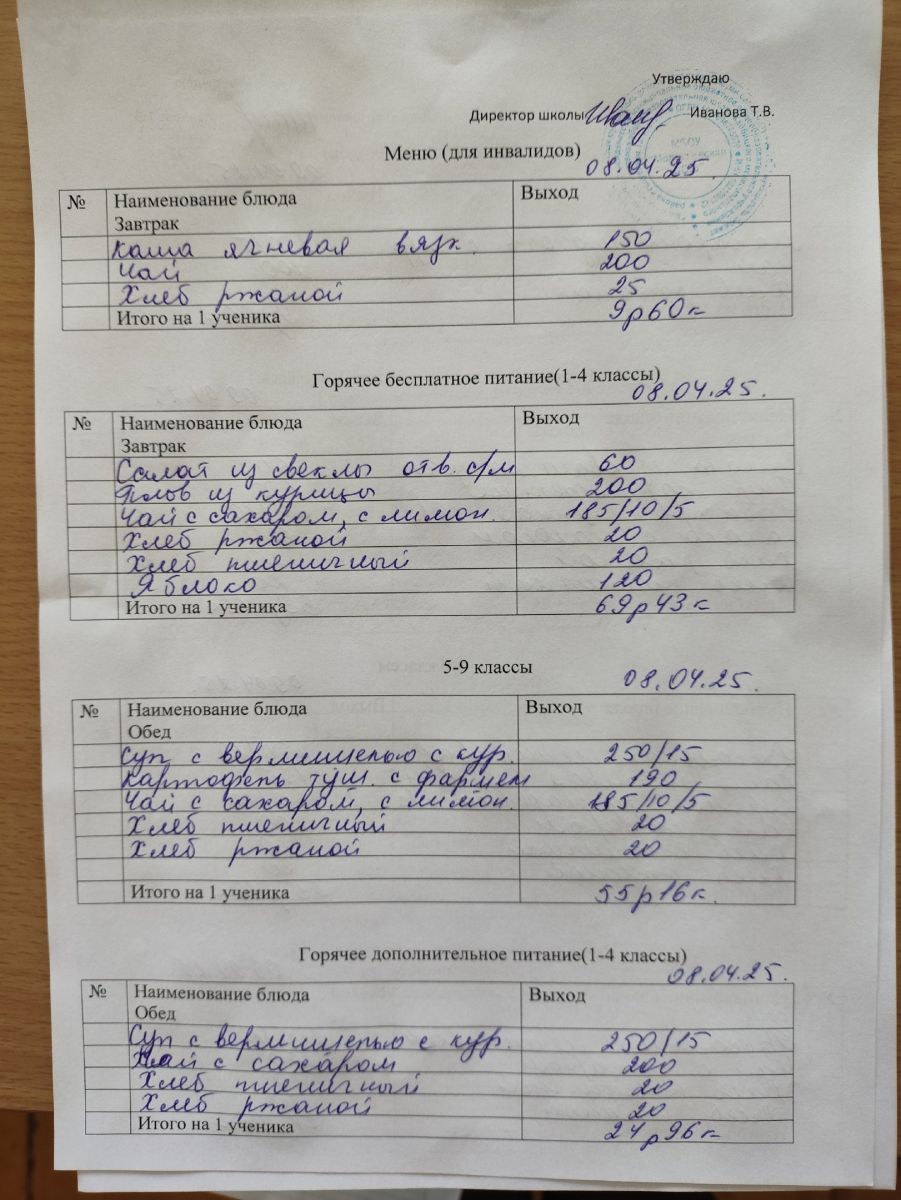 Утверждаю
Директор школы Иванова Т.В.
Меню (для инвалидов)
08.04.25.
№ Наименование блюда Выход
Завтрак
Каша ячневая вязк. 150
Чай 200
Хлеб ржаной 25
Итого на 1 ученика 9р60к
Горячее бесплатное питание(1-4 классы)
08.04.25.
№ Наименование блюда Выход
Завтрак
Салат из свеклы отв. с/м 60
Плов из курицы 200
Чай с сахаром, с лимон. 185/10/5
Хлеб ржаной 20
Хлеб пшеничный 20
Яблоко 120
Итого на 1 ученика 69р43к
5-9 классы
08.04.25.
№ Наименование блюда Выход
Обед
Суп с вермишелью с кур. 250/15
Картофель туш. с фаршем 190
Чай с сахаром, с лимон. 185/10/5
Хлеб пшеничный 20
Хлеб ржаной 20
Итого на 1 ученика 55р16к.
Горячее дополнительное питание(1-4 классы)
08.04.25.
№ Наименование блюда Выход
Обед
Суп с вермишелью с кур. 250/15
Чай с сахаром 200
Хлеб пшеничный 20
Хлеб ржаной 20
Итого на 1 ученика 24р96к